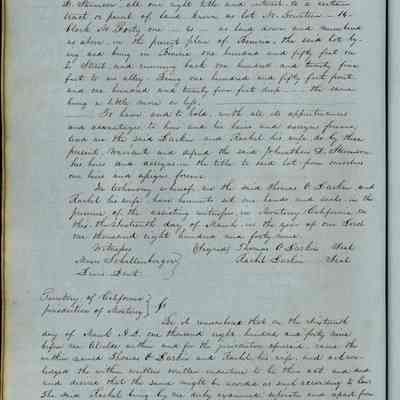 D. Stevenson, all our right title and interest to a certain
tract or parcel of land known as lot No. fourteen - 14 -
Block No Forty one - 41 - as laid down and numbered
as above, in the present plan of Sonoma, the said lot ly-
ing and being in Sonoma one hundred and fifty feet on
street, and running back one hundred and twenty five
feet to an alley. Being one hundred and fifty feet front,
and one hundred and twenty five feet deep the same
being a little more or less.
To have and to hold, with all its appurtenances
and advantages to him and his heirs and assigns forever,
And we the said Larkin and Rachel his wife do by these
present, Warrant and defend the said Johnathan D. Stevenson
his heirs and assigns, in the title to said lot from ourselves
our heirs and assigns forever.
In testimony whereof, we the said Thomas O. Larkin and
Rachel his wife, have hereunto set our hands and seals, in the
presence of the assisting witnesses, in Monterey California on
this the Sixteenth day of March, in the year of our Lord
one thousand eight hundred and forty nine.
Witnesses (Signed) Thomas O Larkin Seal
Moses Schallenberger Rachel Larkin Seal
Lewis Dent
Territory of California
jurisdiction of Monterey
Be it remembered that on the sixteenth
day of March A.D. one thousand eight hundred and forty nine
before me Alcalde within and for the jurisdiction aforesaid, came the
within named Thomas O. Larkin and Rachel his wife, and acknow-
ledged the within written indenture to be their act and deed
and desired that the same might be recorded as such according to law.
The said Rachel being by me duly examined separate and apart from